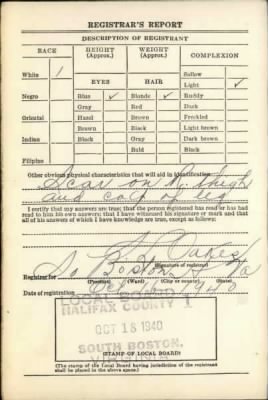 REGISTRAR'S REPORT
DESCRIPTION OF REGISTRANT
RACE HEIGHT (Approx.) WEIGHT (Approx.) COMPLEXION
White / Sallow
EYES HAIR Light ✓
Negro Blue ✓ Blonde ✓ Ruddy
Gray Red Dark
Oriental Hazel Brown Freckled
Brown Black Light brown
Indian Black Gray Dark brown
Bald Black
Filipino
Other obvious physical characteristics that will aid in identification
Scar on R. thigh
and calf of leg
I certify that my answers are true; that the person registered has read or has had
read to him his own answers; that I have witnessed his signature or mark and that
all of his answers of which I have knowledge are true, except as follows:
Oakes
(Signature of registrar)
Registrar for So Boston Va
(Precinct) (Ward) (City or county) (State)
Date of registration
LOCAL BOARD
HALIFAX COUNTY 1
OCT 18 1940
SOUTH BOSTON,
VIRGINIA
(STAMP OF LOCAL BOARD)
(The stamp of the Local Board having jurisdiction of the registrant
shall be placed in the above space.)